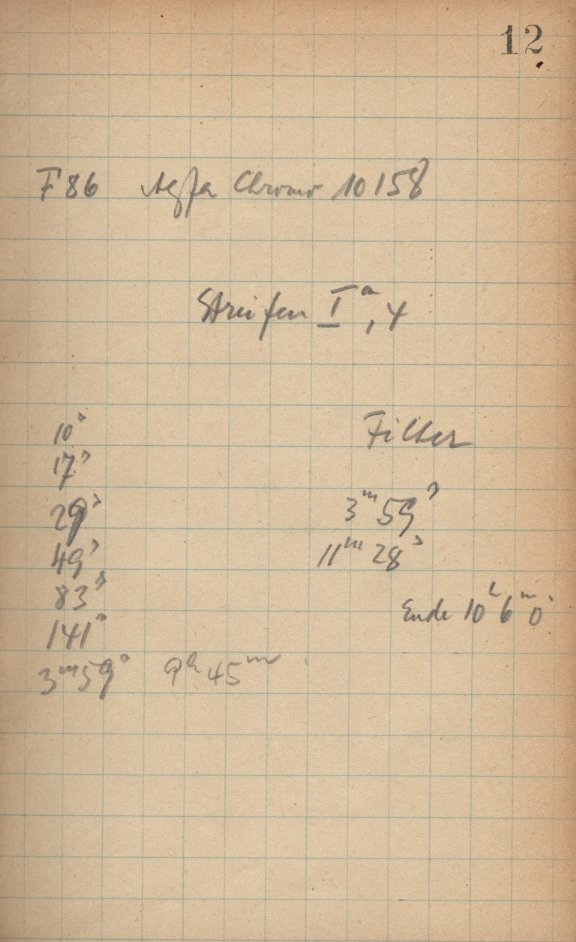 12
F 86 Agfa Chromo 10158
Streifen Iᵃ, 4
10ˢ
17ˢ
29ˢ
49ˢ
83ˢ
141ˢ
3ᵐ59ˢ 9ʰ45ᵐ
Filter
3ᵐ59ˢ
11ᵐ28ˢ
Ende 10ʰ6ᵐ0ˢ